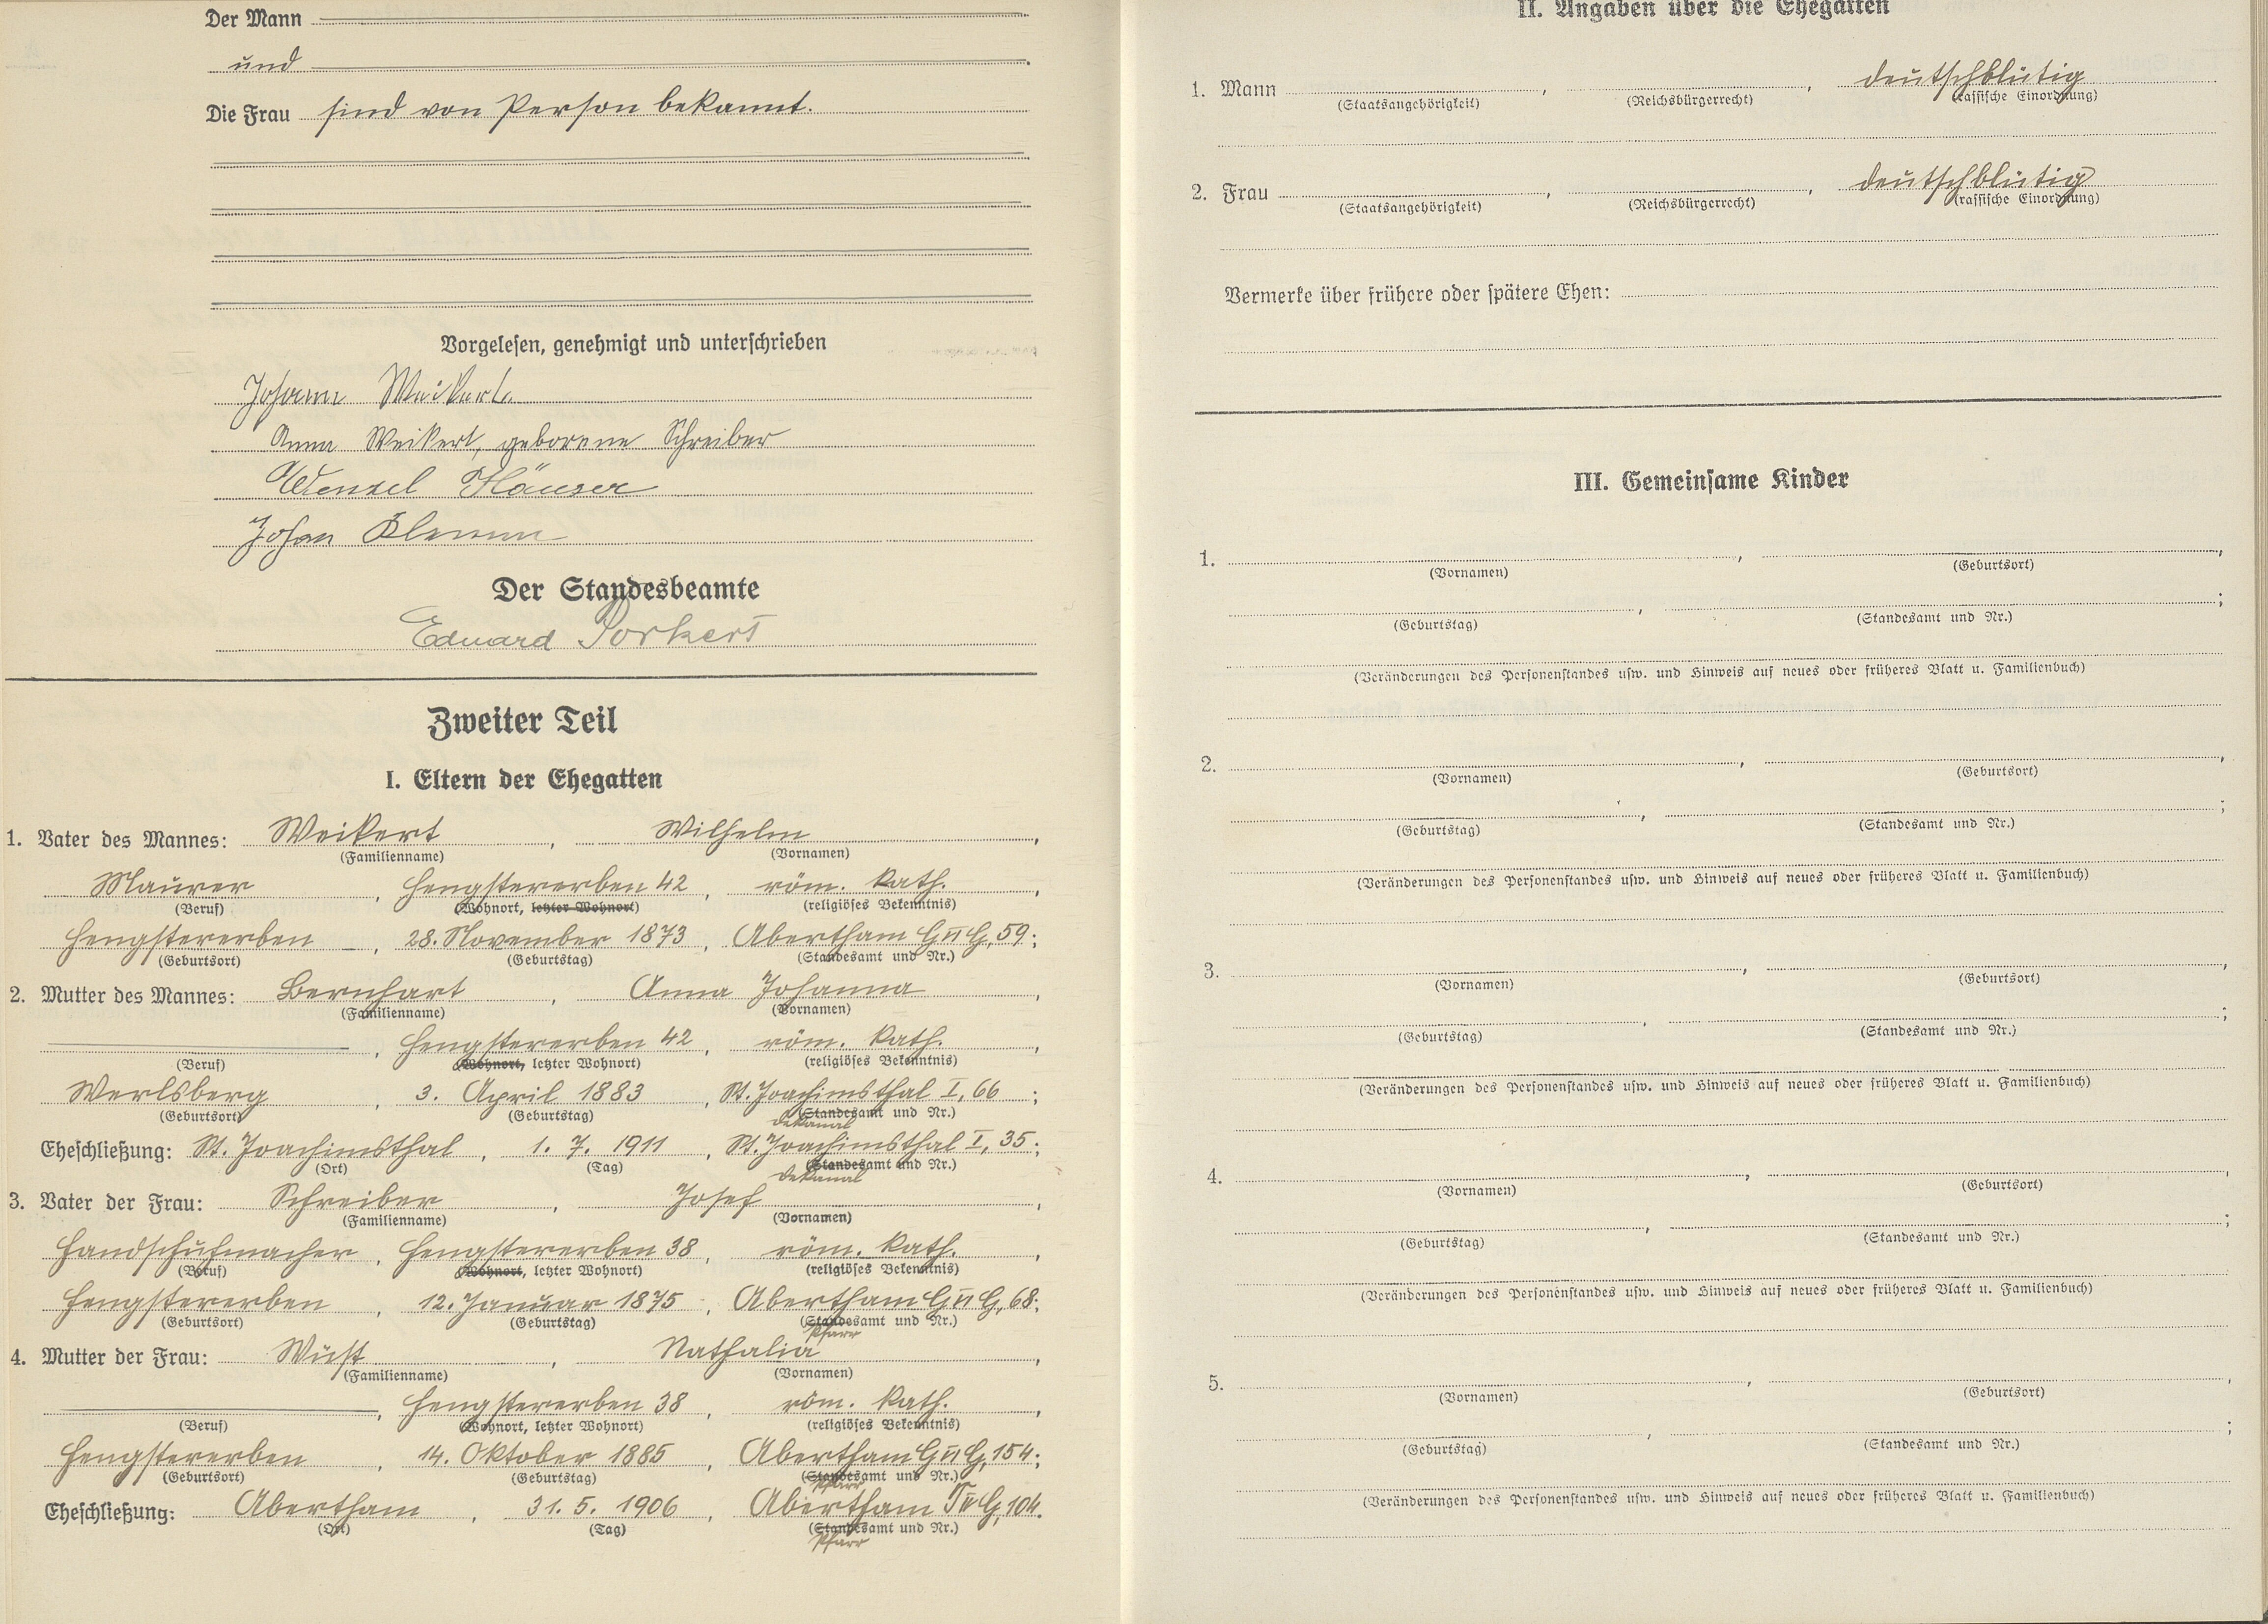 Der Mann
und
Die Frau sind von Person bekannt.
Vorgelesen, genehmigt und unterschrieben
Johann Weikert
Anna Weikert, geborene Schreiber
Wenzel Häuser
Johan Klemm
Der Standesbeamte
Eduard Porkert
Zweiter Teil
I. Eltern der Ehegatten
1. Vater des Mannes: Weikert, Wilhelm,
(Familienname) (Vornamen)
Maurer, Hengstererben 42, röm. kath.,
(Beruf) (Wohnort, letzter Wohnort) (religiöses Bekenntnis)
Hengstererben, 28. November 1873, Abertham G VI G, 59;
(Geburtsort) (Geburtstag) (Standesamt und Nr.)
2. Mutter des Mannes: Bernhart, Anna Johanna,
(Familienname) (Vornamen)
, Hengstererben 42, röm. kath.,
(Beruf) (Wohnort, letzter Wohnort) (religiöses Bekenntnis)
Werlsberg, 3. April 1883, St. Joachimsthal I, 66;
(Geburtsort) (Geburtstag) (Standesamt und Nr.)
Dekanal
Eheschließung: St. Joachimsthal, 1. 7. 1911, St. Joachimsthal I, 35;
(Ort) (Tag) (Standesamt und Nr.)
Dekanal
3. Vater der Frau: Schreiber, Josef,
(Familienname) (Vornamen)
Handschuhmacher, Hengstererben 38, röm. kath.,
(Beruf) (Wohnort, letzter Wohnort) (religiöses Bekenntnis)
Hengstererben, 12. Januar 1875, Abertham G VI G, 68;
(Geburtsort) (Geburtstag) (Standesamt und Nr.)
Pfarr
4. Mutter der Frau: Wüst, Nathalia,
(Familienname) (Vornamen)
, Hengstererben 38, röm. kath.,
(Beruf) (Wohnort, letzter Wohnort) (religiöses Bekenntnis)
Hengstererben, 14. Oktober 1885, Abertham G VI G, 154;
(Geburtsort) (Geburtstag) (Standesamt und Nr.)
Pfarr
Eheschließung: Abertham, 31. 5. 1906, Abertham G, 104.
(Ort) (Tag) (Standesamt und Nr.)
Pfarr
II. Angaben über die Ehegatten
1. Mann , , deutschblütig
(Staatsangehörigkeit) (Reichsbürgerrecht) (rassische Einordnung)
2. Frau , , deutschblütig
(Staatsangehörigkeit) (Reichsbürgerrecht) (rassische Einordnung)
Vermerke über frühere oder spätere Ehen:
III. Gemeinsame Kinder
1. , ,
(Vornamen) (Geburtsort)
, ;
(Geburtstag) (Standesamt und Nr.)
(Veränderungen des Personenstandes usw. und Hinweis auf neues oder früheres Blatt u. Familienbuch)
2. , ,
(Vornamen) (Geburtsort)
, ;
(Geburtstag) (Standesamt und Nr.)
(Veränderungen des Personenstandes usw. und Hinweis auf neues oder früheres Blatt u. Familienbuch)
3. , ,
(Vornamen) (Geburtsort)
, ;
(Geburtstag) (Standesamt und Nr.)
(Veränderungen des Personenstandes usw. und Hinweis auf neues oder früheres Blatt u. Familienbuch)
4. , ,
(Vornamen) (Geburtsort)
, ;
(Geburtstag) (Standesamt und Nr.)
(Veränderungen des Personenstandes usw. und Hinweis auf neues oder früheres Blatt u. Familienbuch)
5. , ,
(Vornamen) (Geburtsort)
, ;
(Geburtstag) (Standesamt und Nr.)
(Veränderungen des Personenstandes usw. und Hinweis auf neues oder früheres Blatt u. Familienbuch)